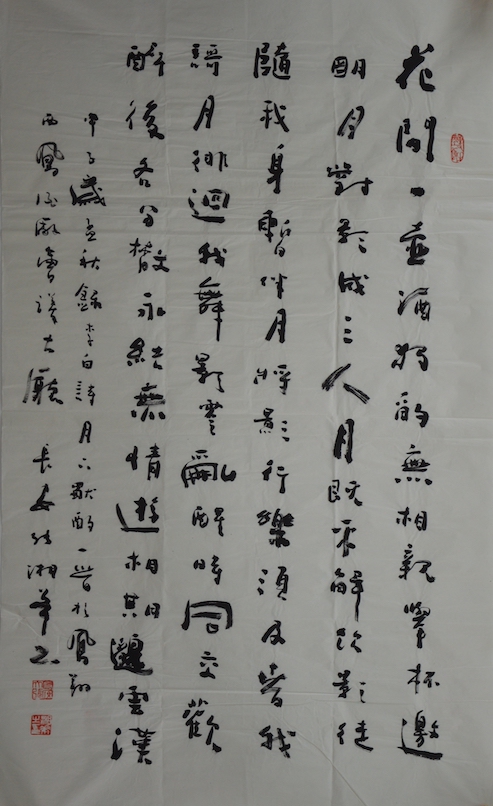 花間一壺酒獨酌無相親舉杯邀
明月對影成三人月既不解飲影徒
隨我身暫伴月將影行樂須及春我
歌月徘徊我舞影零亂醒時同交歡
醉後各分散永結無情遊相期邈雲漢
甲子歲孟秋錄李白詩月下獨酌一首於鳳翔
西鳳酒廠會議大廳 長安